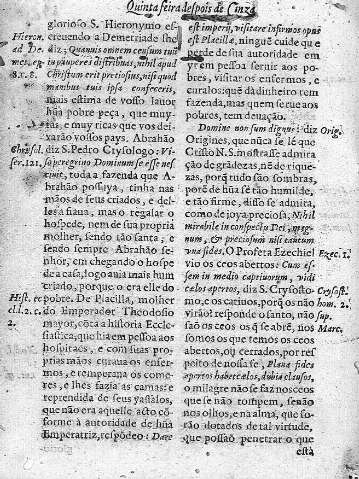 Quinta feira despois de Cinza
glorioso S. Hieronymo es-
creuendo a Demetriade she
diz; Quamuis omnem censum tuum
in pauperes distribuas, nihil apud
Christum erit preciosius, nisi quod
manibus tuis ipsa confeceris,
mais estima de vosso lauor
hũa pobre peça, que muy-
tas, e muy ricas que vos dei-
xarão vossos pays. Abrahão
diz S. Pedro Crysologo: Vi-
so peregrino Dominum se esse nes-
ciuit, toda a fazenda que A-
brahão possuya, tinha nas
mãos de seus criados, e del-
les a fiaua, mas o regalar o
hospede, nem de sua propria
molher, sendo tão santa, e
sendo sempre Abrahão se-
nhor, em chegando o hospe-
de a casa, logo auia mais hum
criado, porque o era elle do
pobre. De Placilla, molher
do Emperador Theodosio
mayor, cõta a historia Eccle-
siastica, que hia em pessoa aos
hospitaes, e com suas pro-
prias mãos curaua os enfer-
mos, e temperaua os come-
res, e lhes fazia as camas: e
reprendida de seus vassalos,
que não era aquelle acto cõ-
forme à autoridade de hũa
Emperatriz, respõdeo: Dare
Hieron.
ad De.
8. c. 8.
Chrysol.
Ser. 121.
Hist. ec
cl. l. 2. c.
2.
est imperij, visitare infirmos opus
est Placillæ, ninguẽ cuide que
perde de sua autoridade em
yr em pessoa seruir aos po-
bres, visitar os enfermos, e
curalos: quẽ dá dinheiro tem
fazenda, mas quem serue aos
pobres, tem deuação.
Domine non sum dignus: diz
Origines, que nũca se lè que
Cristo N. S. mostrasse admira
ção de grãdezas, nẽ de rique-
zas, porq̃ tudo são sombras,
porẽ de hũa fè tão humilde,
e tão firme, disso se admira,
como de joya preciosa; Nihil
mirabile in conspectu Dei, mag-
num, & preciosum nisi tantum
vna fides. O Profeta Ezechiel
vio os ceos abertos: Cum es-
sem in medio captiuorum, vidi
cœlos apertos, diz S. Crysosto-
mo, e os catiuos, porq̃ os não
virão? responde o santo, não
são os ceos os q̃ se abrẽ, nòs
somos os que temos os ceos
abertos, ou cerrados, por res
peito de nossa fè, Plana fides
apertos habet cælos, dubia clausos,
o milagre não se faz nos ceos
que se não rompem, senão
nos olhos, e na alma, que so-
rão dotados de tal virtude,
que possaõ penetrar o que
està
Orig.
Ezec. 1.
Crysost.
hom. 2.
sup.
Marc.